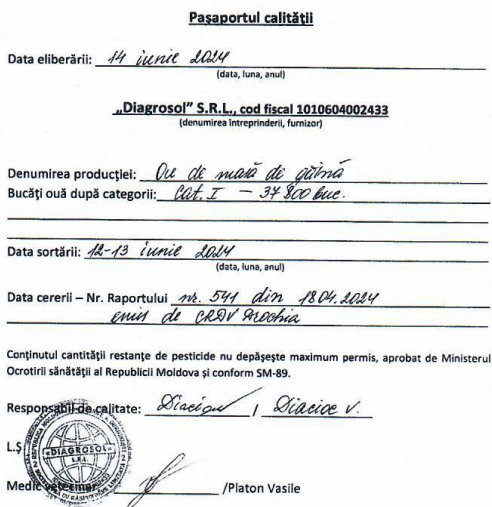 Paşaportul calităţii
Data eliberării: 14 iunie 2024
(data, luna, anul)
„Diagrosol” S.R.L., cod fiscal 1010604002433
(denumirea întreprinderii, furnizor)
Denumirea producţiei: Ou de masă de găină
Bucăţi ouă după categorii: Cat. I — 37 800 buc.
Data sortării: 12-13 iunie 2024
(data, luna, anul)
Data cererii – Nr. Raportului nr. 541 din 18.04.2024
emis de CRDV
Conţinutul cantităţii restanţe de pesticide nu depăşeşte maximum permis, aprobat de Ministerul
Ocrotirii sănătăţii al Republicii Moldova şi conform SM-89.
Responsabil de calitate: / Diacioc V.
L.Ş
«DIAGROSOL»
S.R.L.
Medic veterinar /Platon Vasile